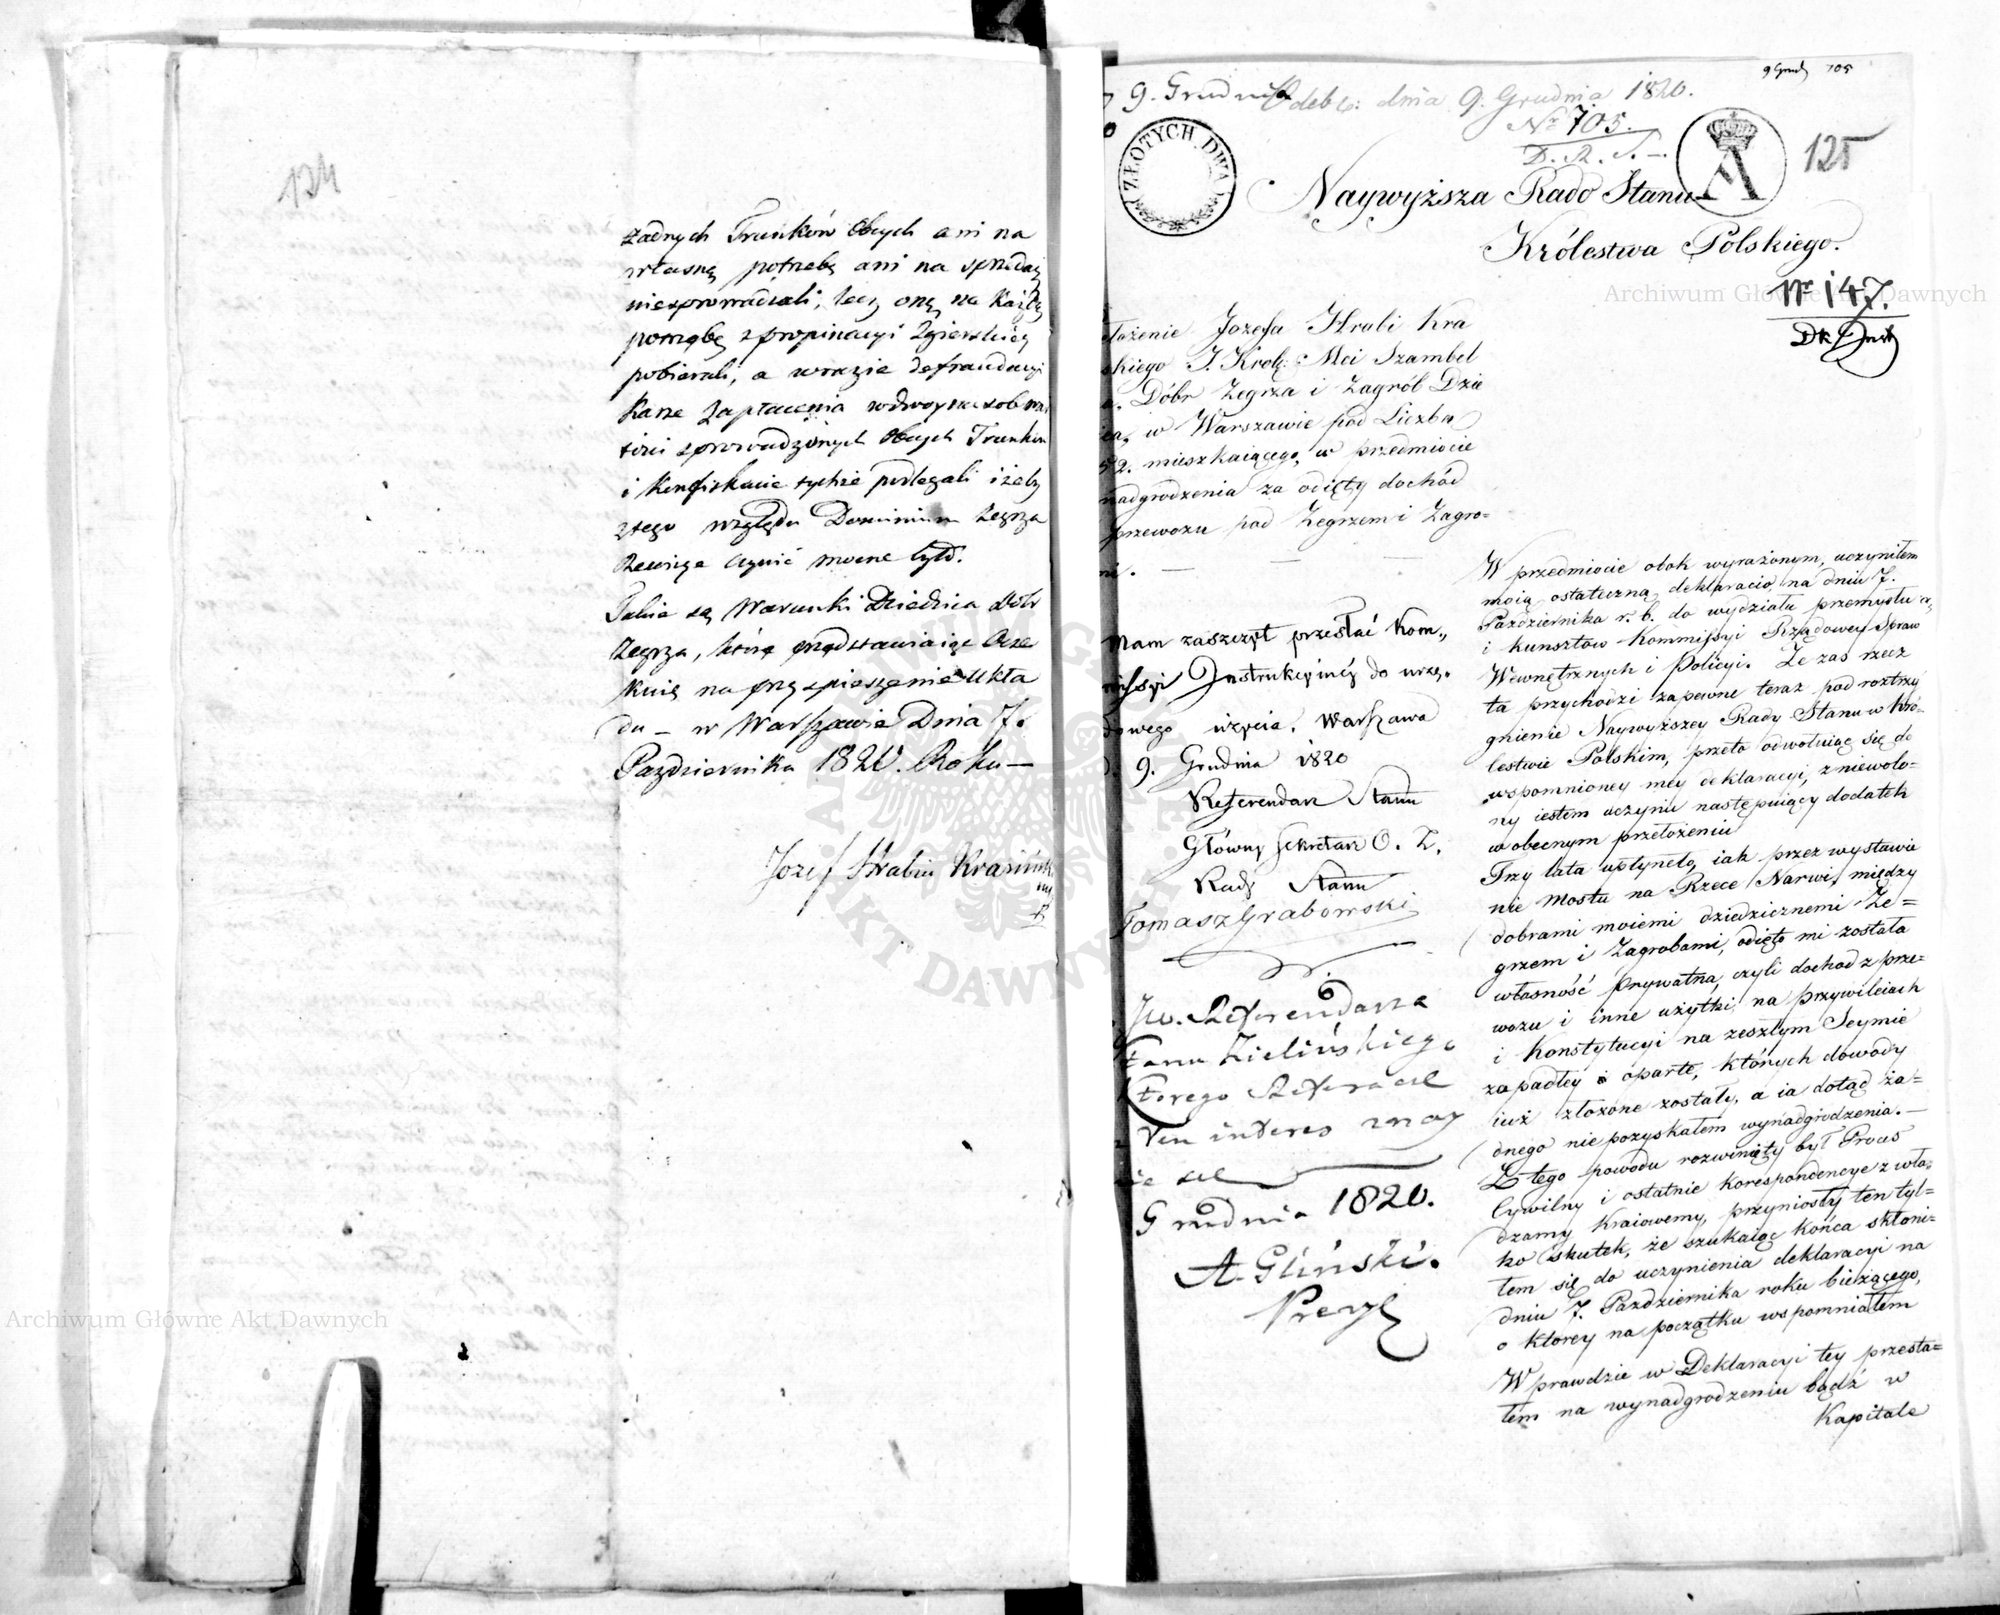 124
żadnych Trunków Obcych ani na
własną potrzebę ani na sprzedaż
niesprowadzali, lecz oną na każdą
potrzebę z propinacyi Zgierskiey
pobierali, a wrazie defraudacyi
Karze Zapłacenia wdwoynasob
sprowadzonych Obcych Trunków
i Konfiskacie tychże podlegali i żeby
ztego względu Dominium Zegrza
Rewizye czynić mocne było.
Takie są Warunki Dziedzica Dóbr
Zegrza, które przedstawiaiąc Ocze
kuię na przyspieszenie Ukła
du – w Warszawie Dnia 7.
Pazdziernika 1820. Roku —
Jozef Hrabia Krasiński
9 Grud 705
9. Grudnia
Odeb: dnia 9. Grudnia 1820.
Nr 705.
D. R. S. –.
ZŁOTYCH. DWA
A
125
Naywyższa Rado Stanu
Królestwa Polskiego.
Nr. 147.
łożenie Jozefa Hrabi Kra
skiego J. Krolę: Mci Szambel
Dóbr Zegrza i Zagrób Dzie
w Warszawie pod Liczbą
52. mieszkaiącego, w przedmiocie
nadgrodzenia za odięty dochód
przewozu pod Zegrzem i Zagro=
mi. — — —
Mam zaszczyt przesłać Kom„
missyi Instrukcyiney do urzę„
dowego użycia. Warszawa
d. 9. Grudnia 1820
Referendarz Stanu
Główny Sekretarz O. Z.
Rady Stanu
Tomasz Grabowski
JW. Referendarza
Stanu Zielińskiego
Ktorego Referacie
Ten interes znay
Grudnia 1820.
A. Gliński.
Prezyd
W przedmiocie obok wyrażonym, uczyniłem
moią ostateczną deklaracię na dniu 7.
Października r. b. do wydziału przemysłu
i kunsztow Kommissyi Rządowey Spraw
Wewnętrznych i Policyi. Że zas rzecz
ta przychodzi zapewne teraz pod roztrzy
gnienie Naywyższey Rady Stanu w Kró=
lestwie Polskim, przeto odwołuiąc się do
wspomnioney mey deklaracyi, zniewolo=
ny iestem uczynić następuiący dodatek
w obecnym przełożeniu
Trzy lata upłynęło, iak przez wystawie
nie Mostu na Rzece Narwi, między
dobrami moiemi dziedzicznemi Ze=
grzem i Zagrobami, odięta mi została
własność prywatna, czyli dochod z prze=
wozu i inne użytki, na przywileiach
i Konstytucyi na zeszłym Seymie
zapadłey oparte, których dowody
iuż złożone zostały, a ia dotąd ża=
dnego nie pozyskałem wynadgrodzenia. —
Z tego powodu rozwinięty był Proces
Cywilny i ostatnie korespondencye z wła=
dzamy Kraiowemy, przyniosły ten tyl=
ko skutek, że szukaiąc końca skłoni=
łem się do uczynienia deklaracyi na
dniu 7. Pazdziernika roku bieżącego,
o ktorey na początku wspomniałem
Wprawdzie w Deklaracyi tey przesta=
łem na wynadgrodzeniu bądź w
Kapitale
Archiwum Główne Akt Dawnych
Archiwum Główne Akt Dawnych
ARCHIWUM GŁÓWNE AKT DAWNYCH